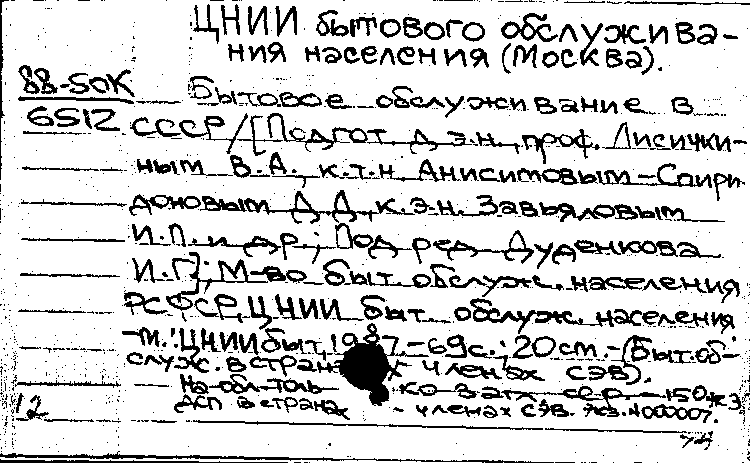 ЦНИИ бытового обслужива-
ния населения (Москва).
88-50К
6512
Бытовое обслуживание в
СССР/[Подгот. д.э.н., проф. Лисички-
ным В.А., к.т.н Анисимовым-Спири
доновым Д.Д., к.э.н. Завьяловым
И.П. и др.; Под ред Дуденкова
И.Г]; М-во быт. обслуж. населения
РСФСР, ЦНИИ быт. обслуж. населения
-М.: ЦНИИбыт, 1987.-69с.; 20см.-(Быт.об-
служ. в странах - членах СЭВ).
На обл. толь ко загл. сер. - 150 экз
ДСП в странах - членах СЭВ. Экз. N000007.
12